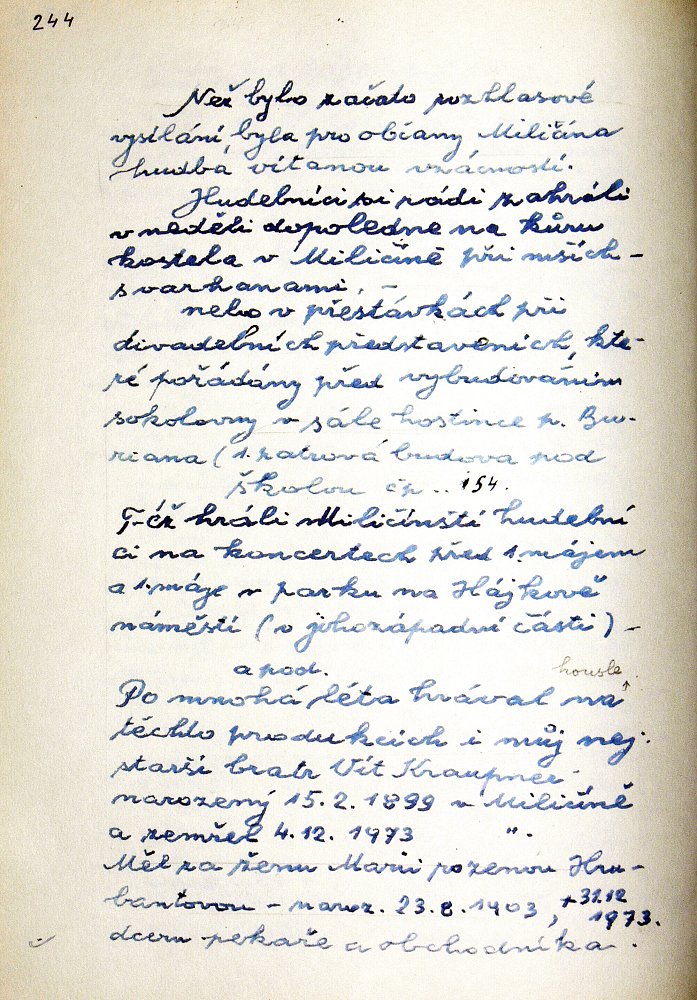 244
Než bylo začato rozhlasové
vysílání, byla pro občany Miličína
hudba vítanou vzácností.
Hudebníci si rádi zahráli
v neděli dopoledne na kůru
kostela v Miličíně při mších -
s varhanami, -
nebo v přestávkách při
divadelních představeních, kte-
ré pořádány před vybudováním
sokolovny v sále hostince p. Bu-
riana (1. patrová budova pod
školou čp.. 154.
T-éž hráli Miličínští hudební
ci na koncertech před 1. májem
a 1. máje v parku na Hájkově
náměstí (v jihozápadní části) -
a pod.
housle
Po mnohá léta hrával na
těchto produkcích i můj nej-
starší bratr Vít Kraupner
narozený 15. 2. 1899 v Miličíně
a zemřel 4. 12. 1973 ".
Měl za ženu Marii rozenou Hru-
bantovou - naroz. 23. 8. 1903, + 31.12
1973.
dceru pekaře a obchodníka.